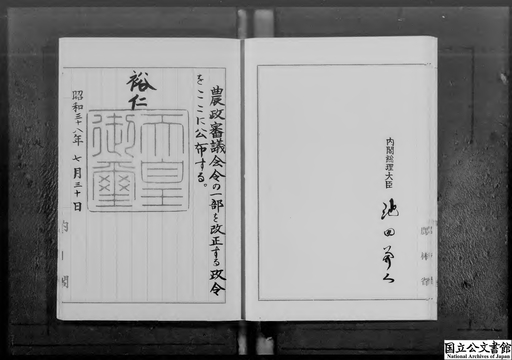 内閣総理大臣
池田勇人
農政審議会令の一部を改正する政令
をここに公布する。
裕仁
天皇
御璽
昭和三十八年七月三十日
国立公文書館
National Archives of Japan